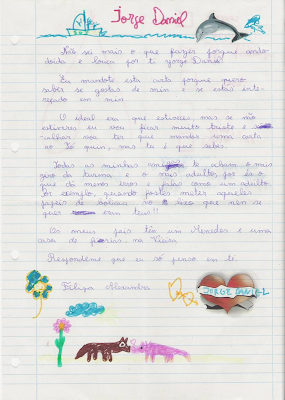 Jorge Daniel
Não sei mais o que fazer porque ando
doida e louca por ti Jorge Daniel!
Eu mandote esta carta porque quero
saber se gostas de mim e se estas ente-
reçado em mim.
O ideal era que estivéces, mas se não
estiveres eu vou ficar muito triste e
vou ter que mandar uma carta
ao Tó quim, mas tu é que sabes.
Todas as minhas te acham o mais
giro da turma e o mais adulto, por és o
que dá menos erros e falas como um adulto
Por exemplo, quando fostes meter aqueles
papeis de bolicau no lixo que nem se
quer eram teus!!
Os meus pais têm um Mercedes e uma
casa de na Vieira
Respondeme que eu só penso em ti
Felipa Alexandra
JORGE DANIEL